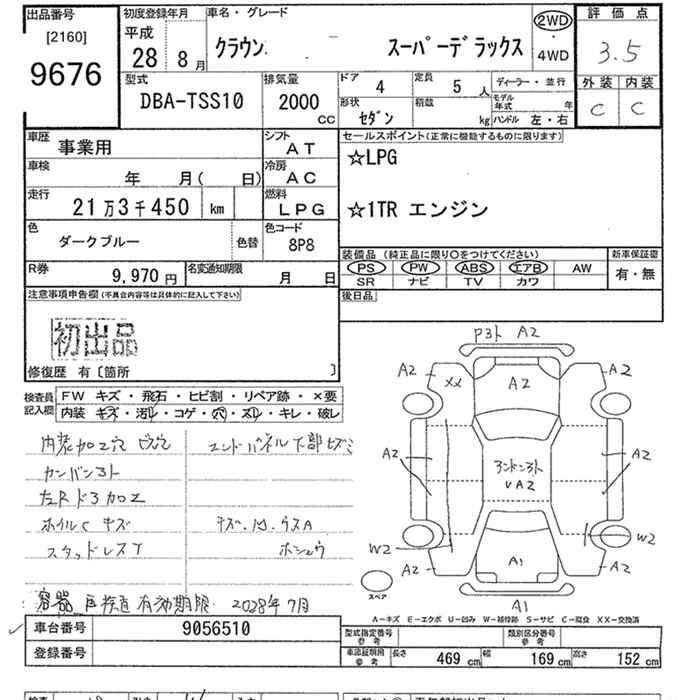 出品番号
[2160]
9676
初度登録年月
平成
28 8月
車名・グレード
クラウン スーパーデラックス
2WD
4WD
評価点
3.5
外装 内装
C C
型式
DBA-TSS10
排気量
2000
CC
ドア 4
定員 5 人
ディーラー・並行
形状 セダン
積載 kg
モデル年式 年
ハンドル 左・右
車歴
事業用
シフト
AT
車検
年 月( 日)
冷房
AC
走行
21万3千450 km
燃料
LPG
色
ダークブルー
色替
色コード
8P8
R券
9,970円
名変通知期限
月 日
セールスポイント(正常に機能するものに限ります)
☆LPG
☆1TR エンジン
装備品(純正品に限り〇をつけてください)
PS PW ABS エアB AW
SR ナビ TV カワ
新車保証書
有・無
後日品
注意事項申告欄(不具合内容等は具体的に記入して下さい)
初出品
修復歴 有〔箇所 〕
検査員記入欄
FW キズ・飛石・ヒビ割・リペア跡・×要
内装 キズ・汚れ・コゲ・穴・スレ・キレ・破レ
内装加工穴 ビス穴
エンドパネル下部キズミ
カンバン3ト
左Rドア加工
ホイルC キズ
キズ・凹・ウスA
スタッドレスT
ホシュウ
容器再検査有効期限 2028年7月
P3ト A2
A2 XX A2 A2
A2 A2
アンドン3ト
VA2
W2 W2
A2 A1 A2
A1
スペア
A-キズ E-エクボ U-凹み W-補修跡 S-サビ C-腐食 XX-交換済
車台番号
9056510
登録番号
型式指定番号
参考
類別区分番号
参考
車庫証明用
参考
長さ 469 cm
幅 169 cm
高さ 152 cm